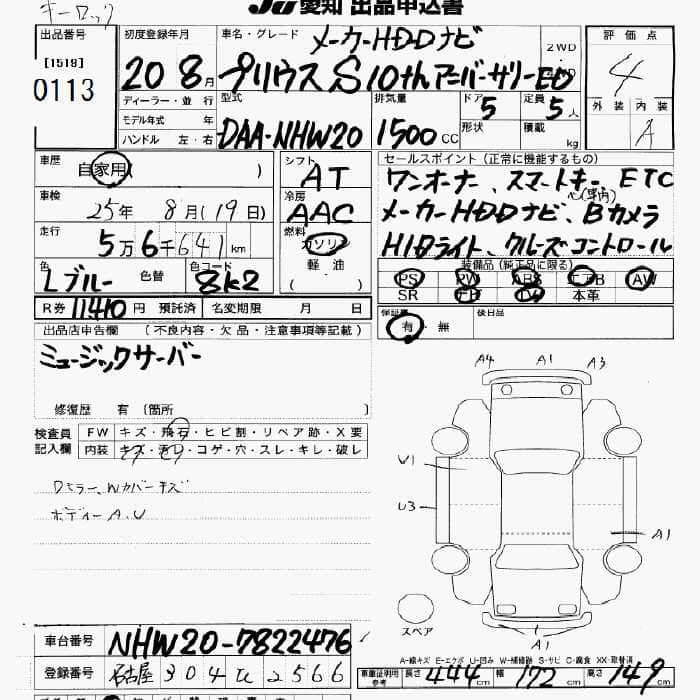 キーロック
JU 愛知 出品申込書
出品番号
[1519]
0113
初度登録年月
20 8月
車名・グレード
メーカーHDDナビ
プリウス S 10thアニバーサリーED
2WD
評価点
4
外装 内装
A
ディーラー・並行
モデル年式 年
ハンドル 左・右
型式
DAA-NHW20
排気量
1500 CC
ドア 5
形状
定員 5人
積載 kg
車歴
自家用( )
車検
25年 8月(19日)
走行
5万6千641km
色
Lブルー
色替
色コード
8K2
シフト
AT
冷房
AAC
燃料
ガソリン
軽油
( ・ )
セールスポイント(正常に機能するもの)
ワンオーナー、スマートキー ETC
メーカーHDDナビ、Bカメラ
HIDライト、クルーズコントロール
装備品(純正品に限る)
PS PW ABS エアB AW
SR ナビ TV 本革
R券 11410円 預託済 名変期限 月 日
保証書
有・無
後日品
出品店申告欄 (不良内容・欠品・注意事項等記載)
ミュージックサーバー
修復歴 有 (箇所 )
検査員
記入欄
FW キズ・飛石・ヒビ割・リペア跡・X要
内装 キズ・汚レ・コゲ・穴・スレ・キレ・破レ
Dミラー、Wカバーキズ
ボディーA.U
A4 A1 A3
U1
U3
A1
スペア
A1
A-線キズ E-エクボ U-凹み W-補修跡 S-サビ C-腐食 XX-取替済
車台番号
NHW20-7822476
登録番号
名古屋 304 に 2566
車庫証明用
参考
長さ 444cm 幅 172cm 高さ 149cm